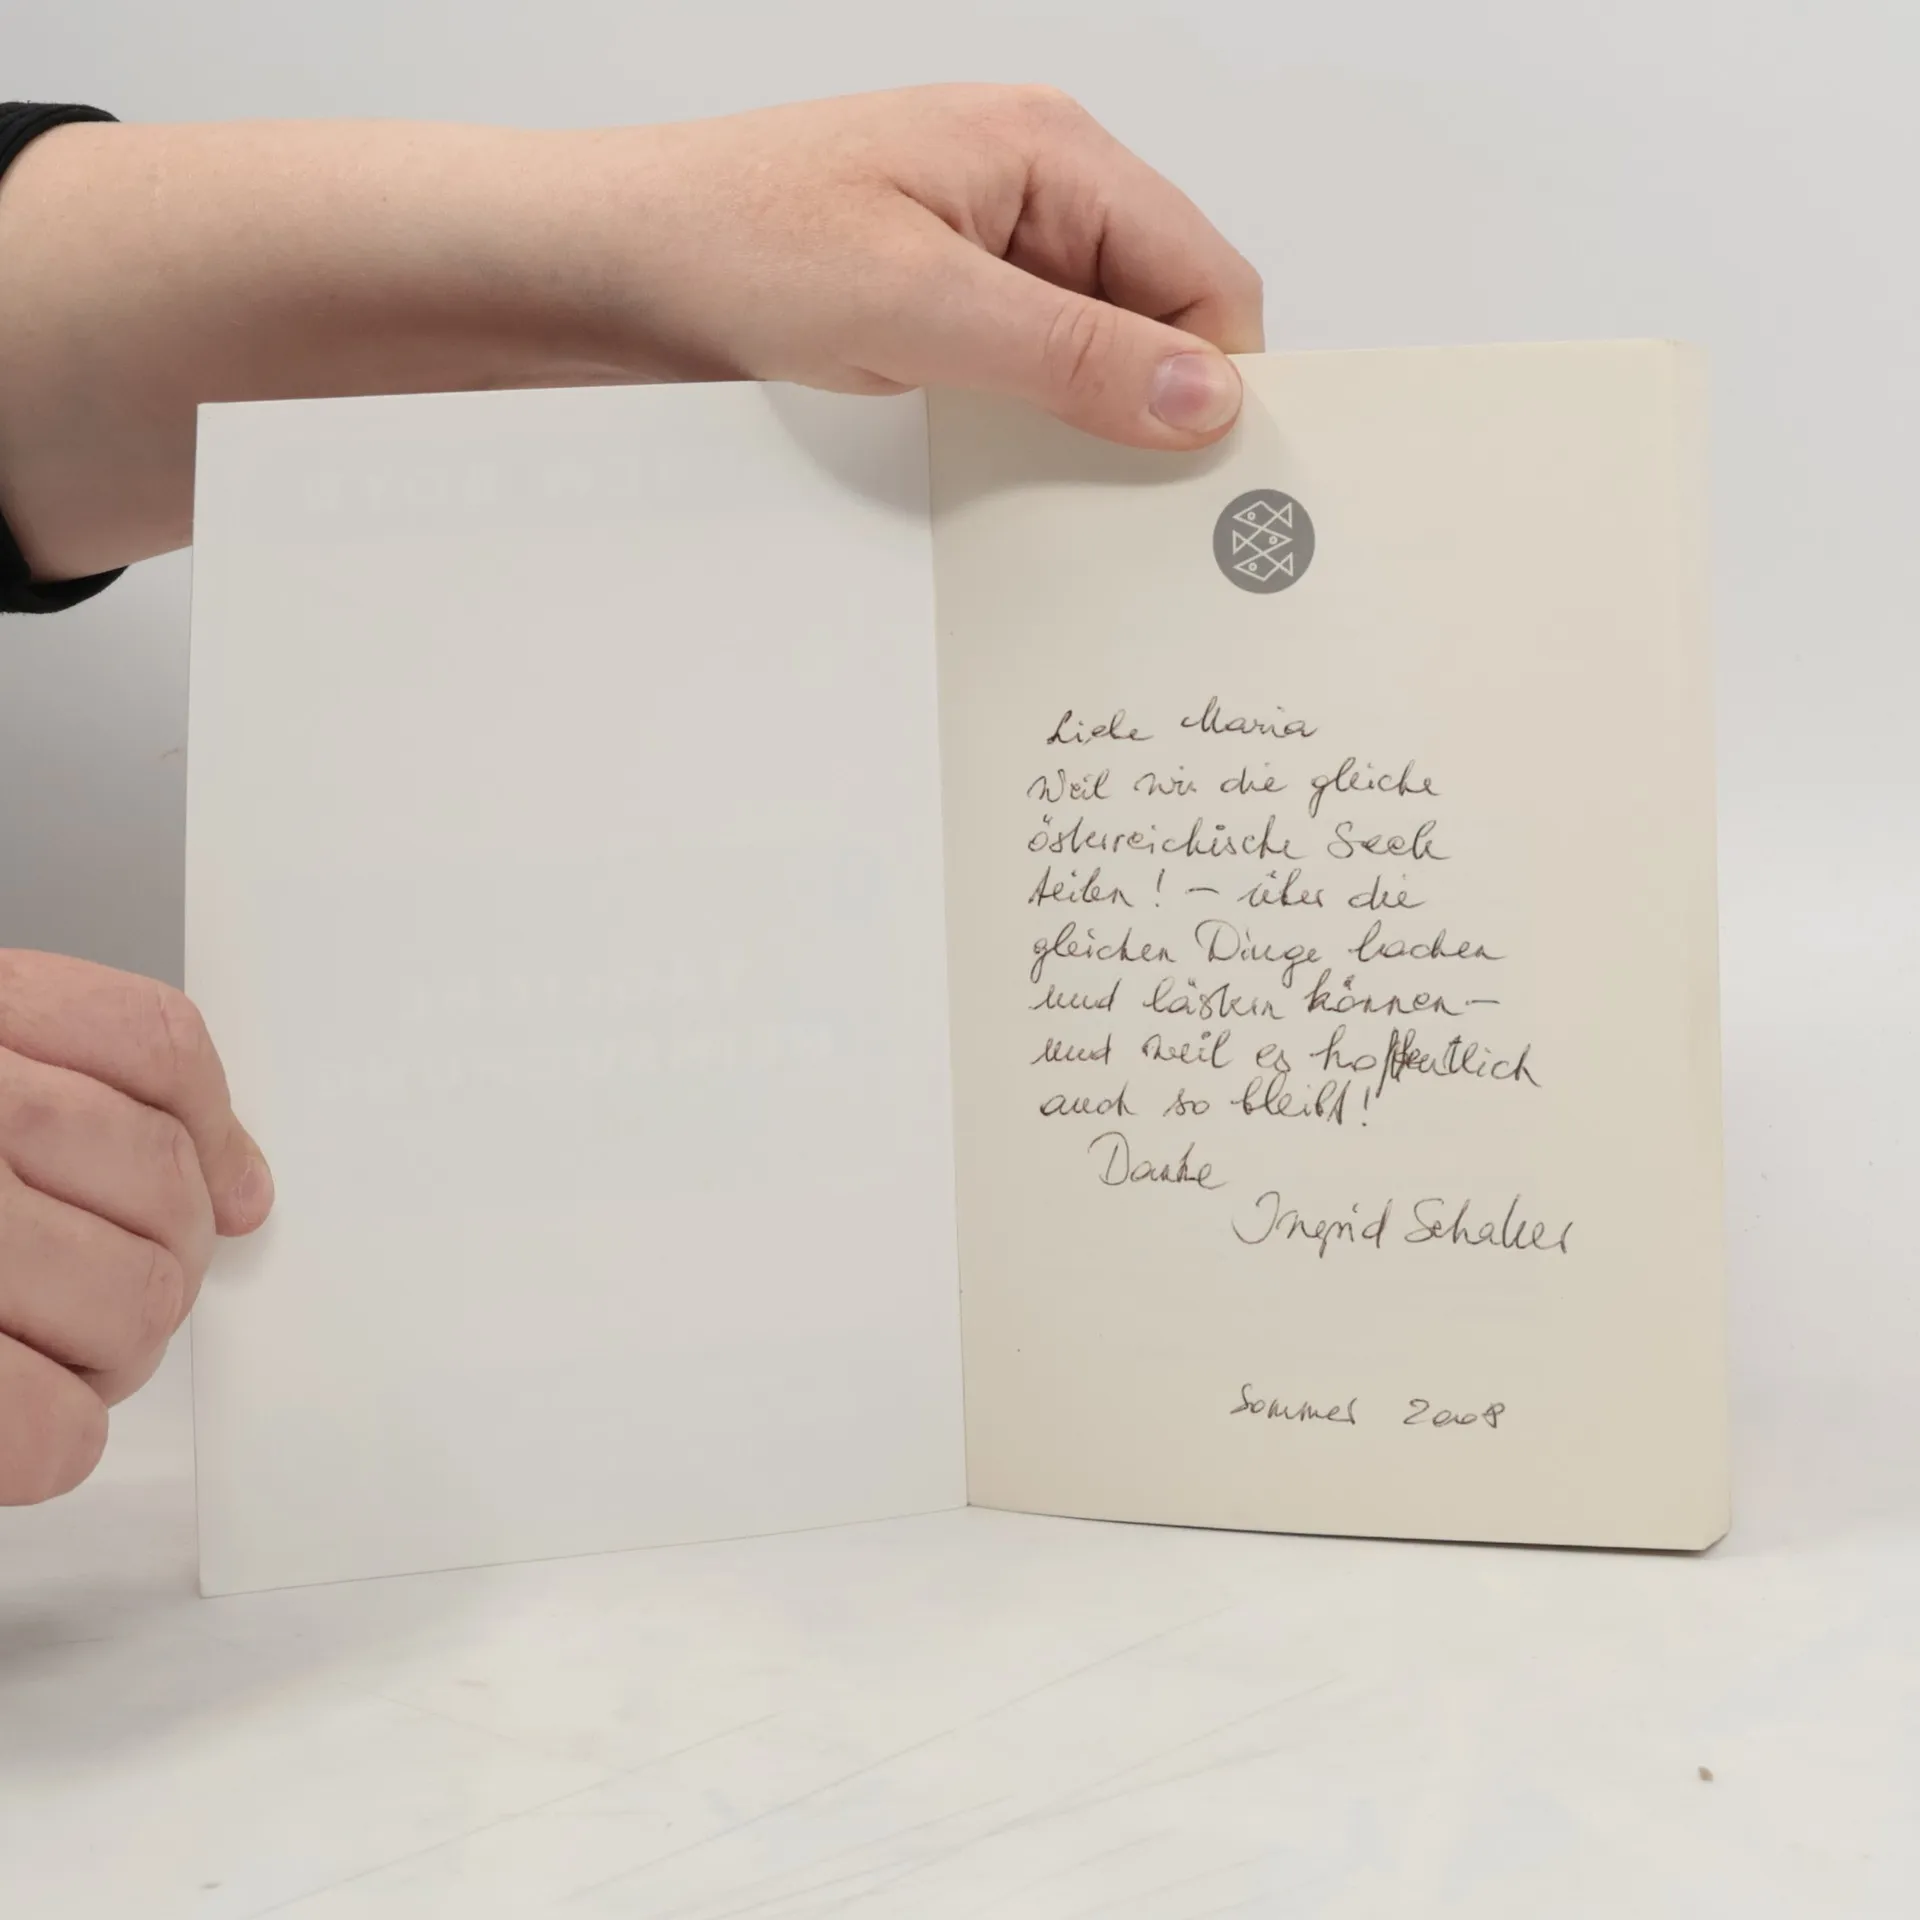 Liebe Maria
Weil wir die gleiche
österreichische Seele
teilen! – über die
gleichen Dinge lachen
und lästern können –
und weil es hoffentlich
auch so bleibt!
Danke
Ingrid
Sommer 2008